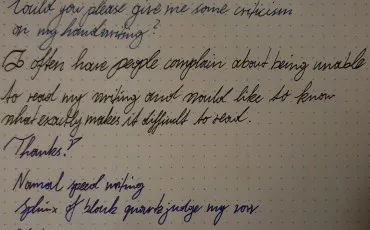 Could you please give me some criticism
on my handwriting?
I often have people complain about being unable
to read my writing and would like to know
what exactly makes it difficult to read.
Thanks!
Normal speed writing
Sphinx of black quartz judge my vow